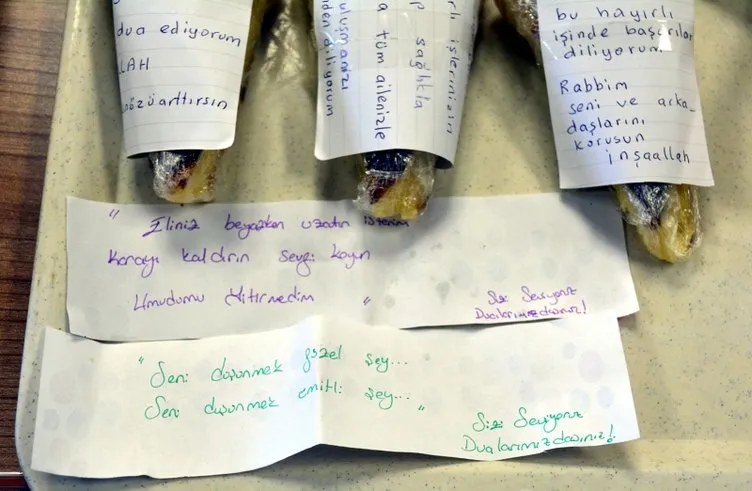 dua ediyorum
LLAH
nözü arttırsın
rlı işlerinizin
p sağlıkla
a tüm ailenizle
uluşmanızı
den diliyorum
bu hayırlı
işinde başarılar
diliyorum
Rabbim
seni ve arka_
daşlarını
korusun
inşaallah
" Eliniz beyazken uzatın isterim
Karayı kaldırın sevgi koyun
Umudumu Yitirmedim "
Sizi Seviyoruz
Dualarımızdasınız!
" Seni düşünmek güzel şey...
Seni düşünmek ümitli şey... "
Sizi Seviyoruz
Dualarımızdasınız!